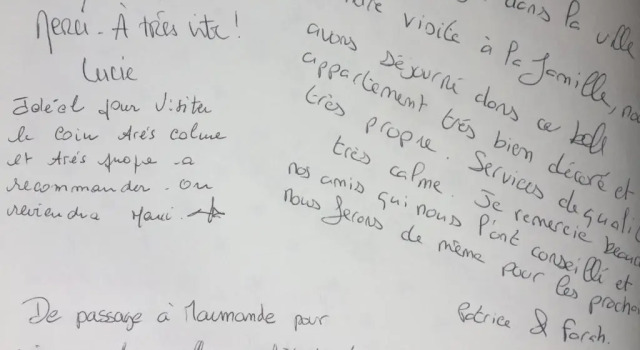 Merci. À très vite!
Lucie
Idéal pour visiter
le coin très calme
et très propre a
recommander. on
reviendra Merci.
De passage à Marmande pour
dans la ville
visite à la famille, nous
avons séjourné dans ce bel
appartement très bien décoré et
très propre. Services de qualit
très calme. Je remercie beauc
nos amis qui nous l'ont conseillé et
nous ferons de même pour les procha
Patrice & Farah.